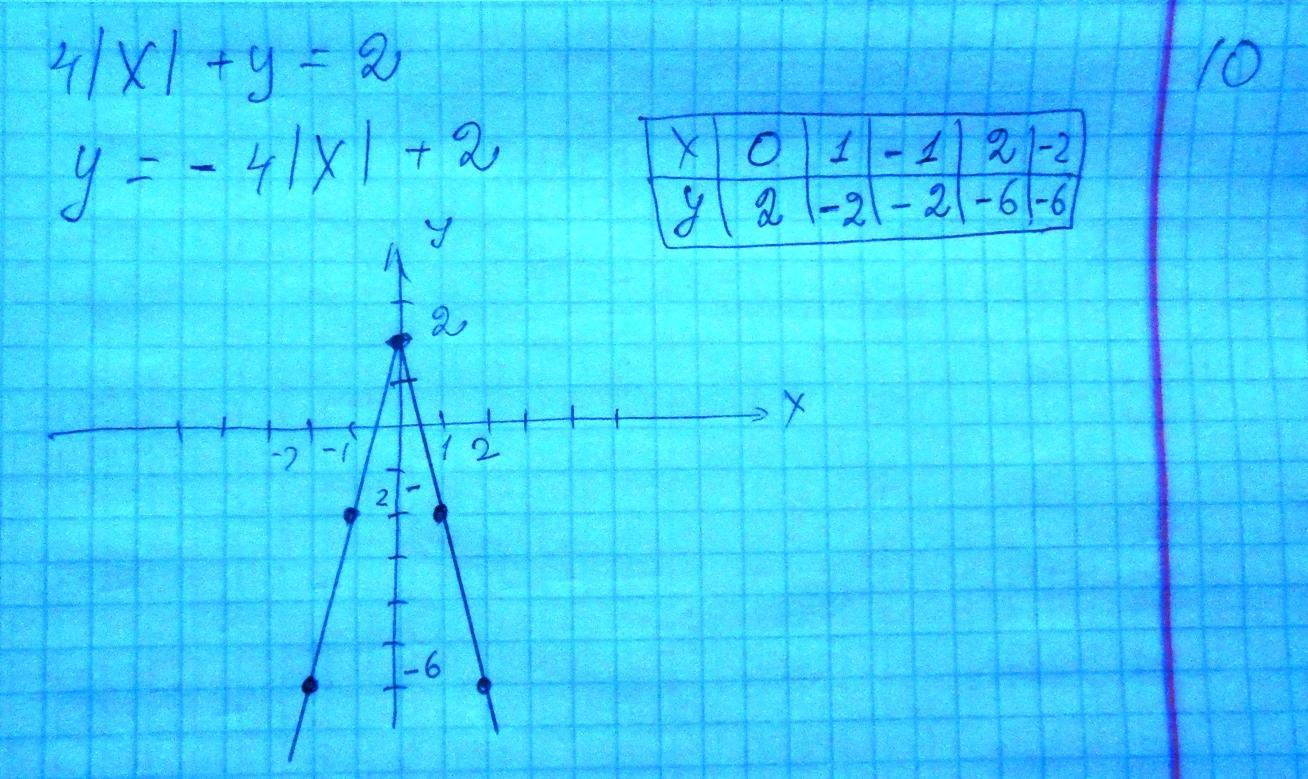 4|X| + y = 2
10
y = - 4|X| + 2
X 0 1 -1 2 -2
y 2 -2 -2 -6 -6
y
2
X
-2 -1 1 2
2 -
-6